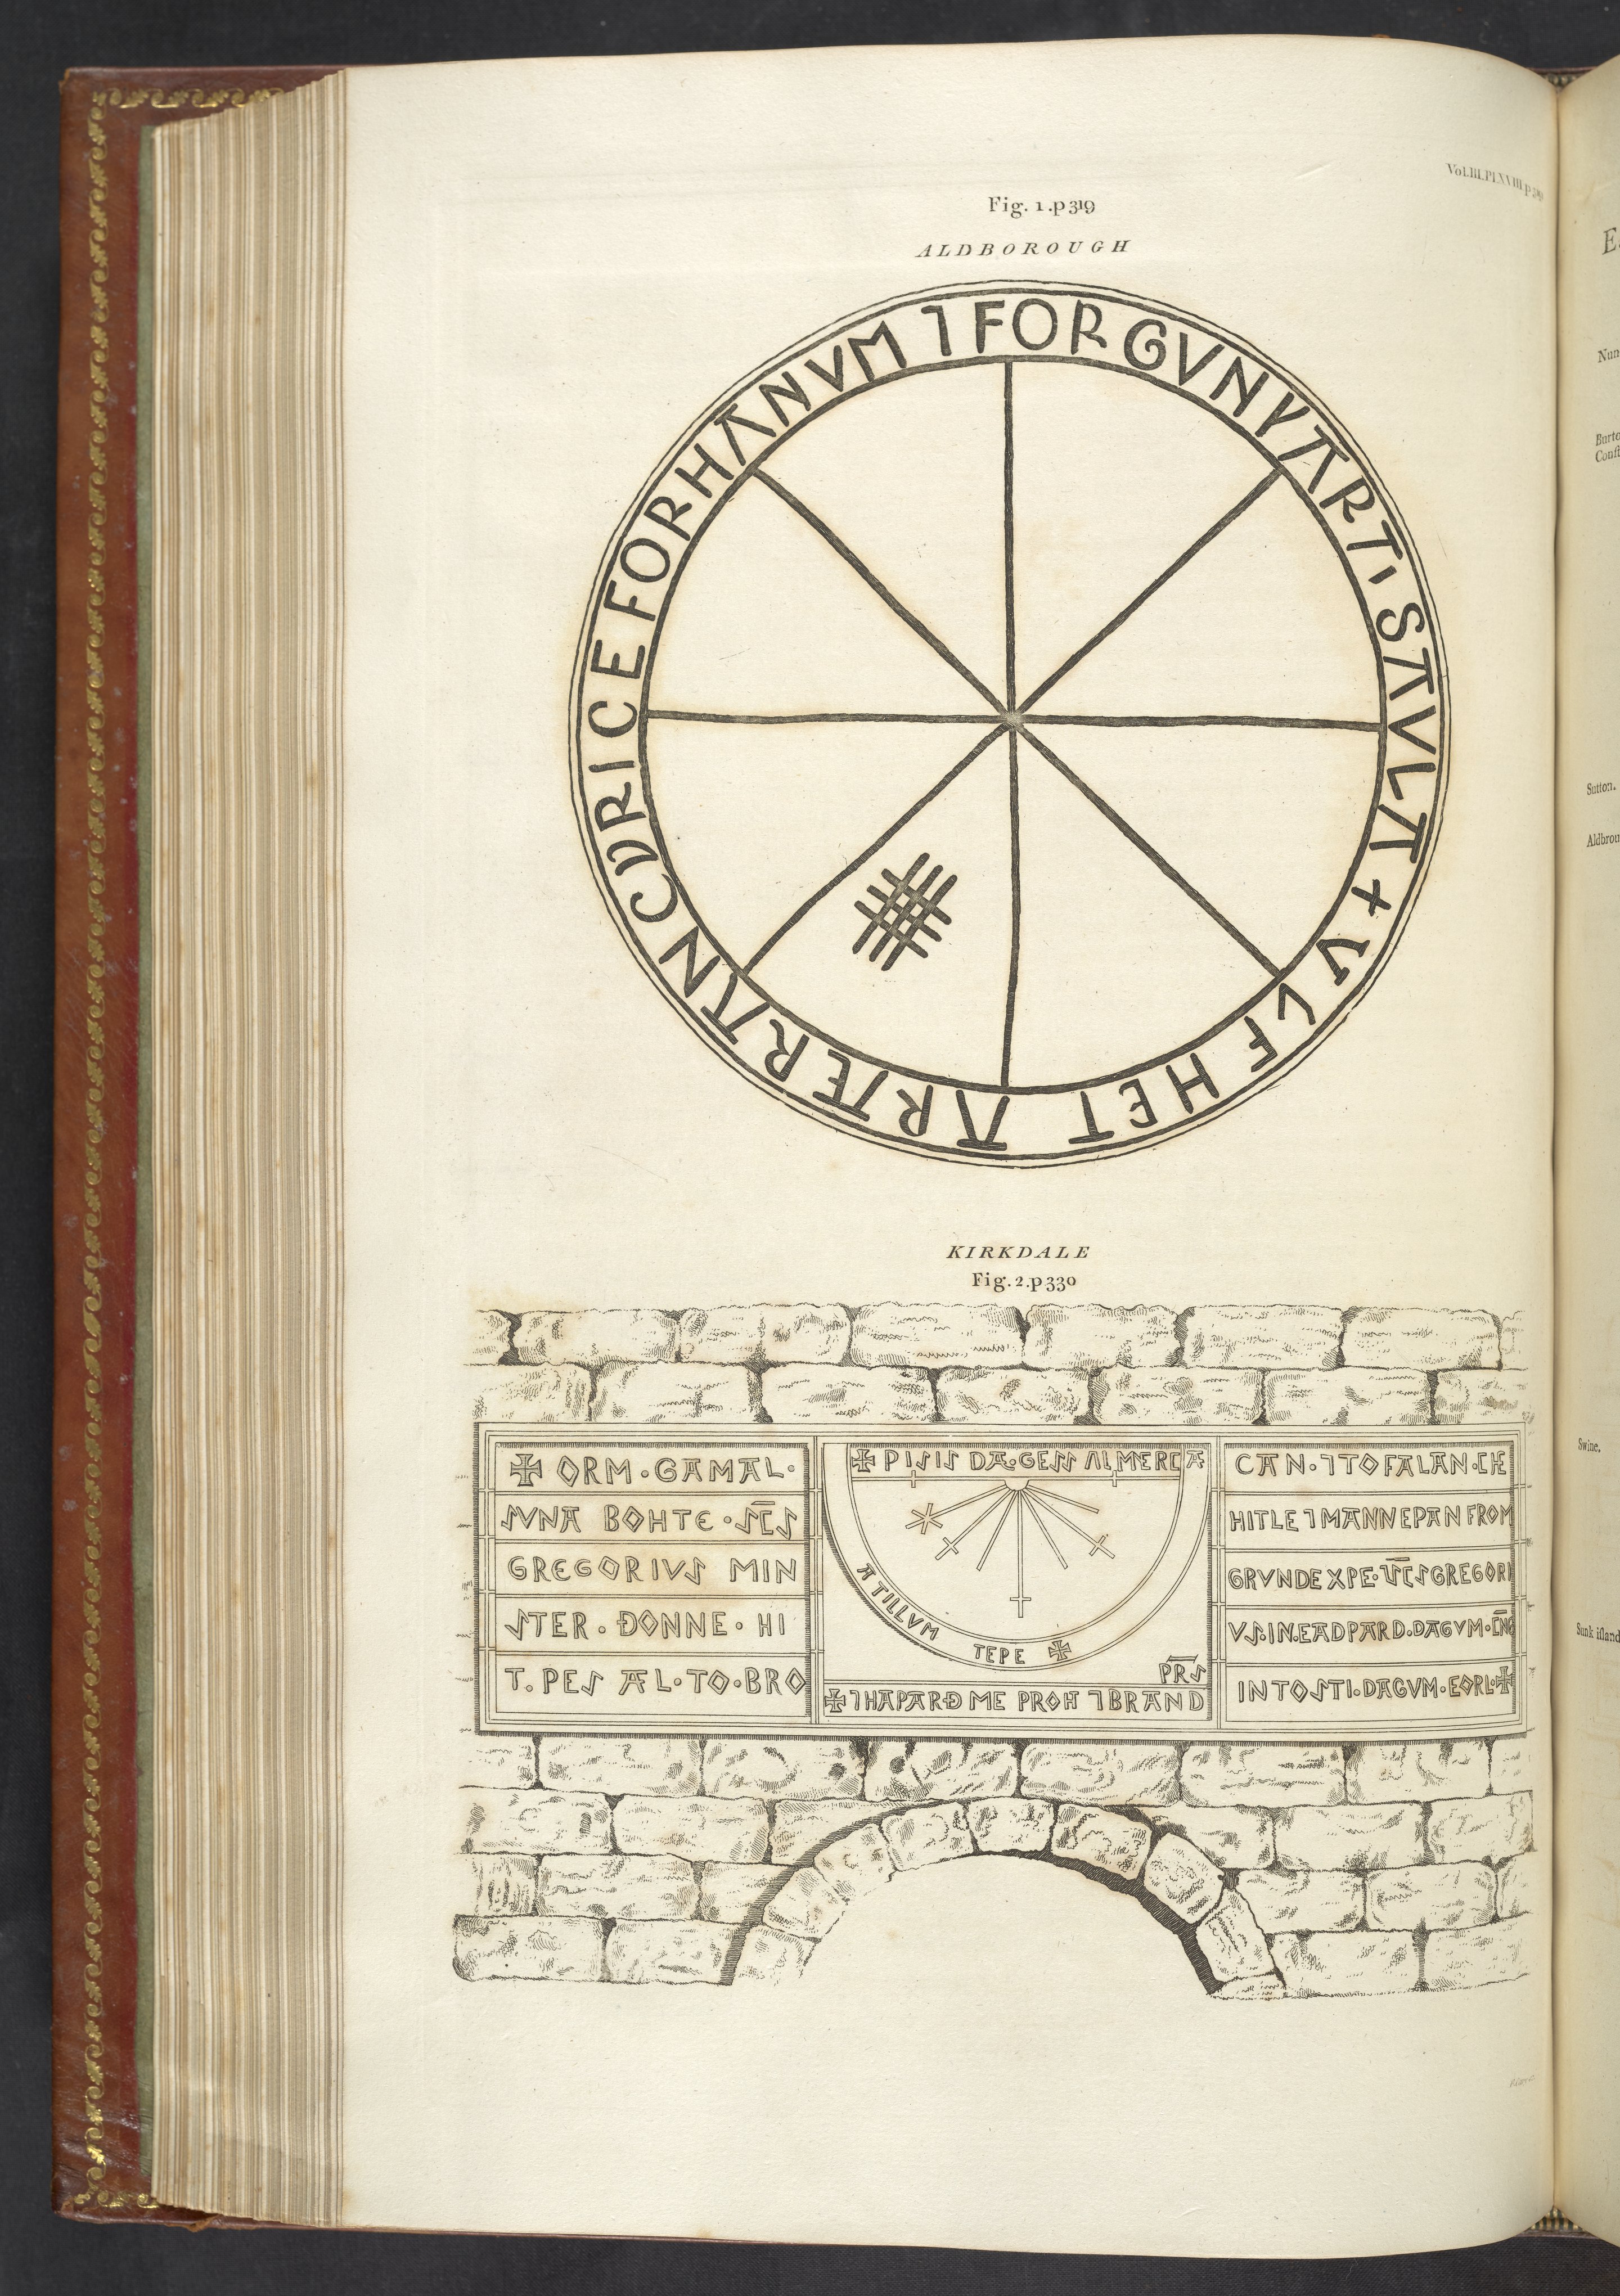 Vol.III.Pl.XVIII.p
Fig. 1.p319
ALDBOROUGH
+ VLF HET ARÆRAN CVRICE FOR HANVM ⁊ FOR GVNǷARTI SAVLA
KIRKDALE
Fig.2.p330
✠ ORM·GAMAL·
SVNA BOHTE·SC̅S
GREGORIVS MIN
STER·ÐONNE·HI
T·ǷES ÆL·TO·BRO
✠ ǷISIS DÆ·GES SALMERCA
ATILLVM
TEǷE ✠
PR̅S
✠ ⁊ HAǷARÐ ME PROH ⁊ BRAND
CAN·⁊ TOFALAN·CHE
HITLE ⁊ MANNEǷAN FROM
GRVNDE XPE·⁊ SC̅S GREGORI
VS·IN·EADǷARD·DAGVM·CN̅G
INTOSTI·DAGVM·EORL·✠
E
Nun
Burto
Conf
Sutton.
Aldbrou
Swine.
Sunk island